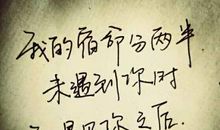 我的宿命分两半
未遇到你时
遇见你之后